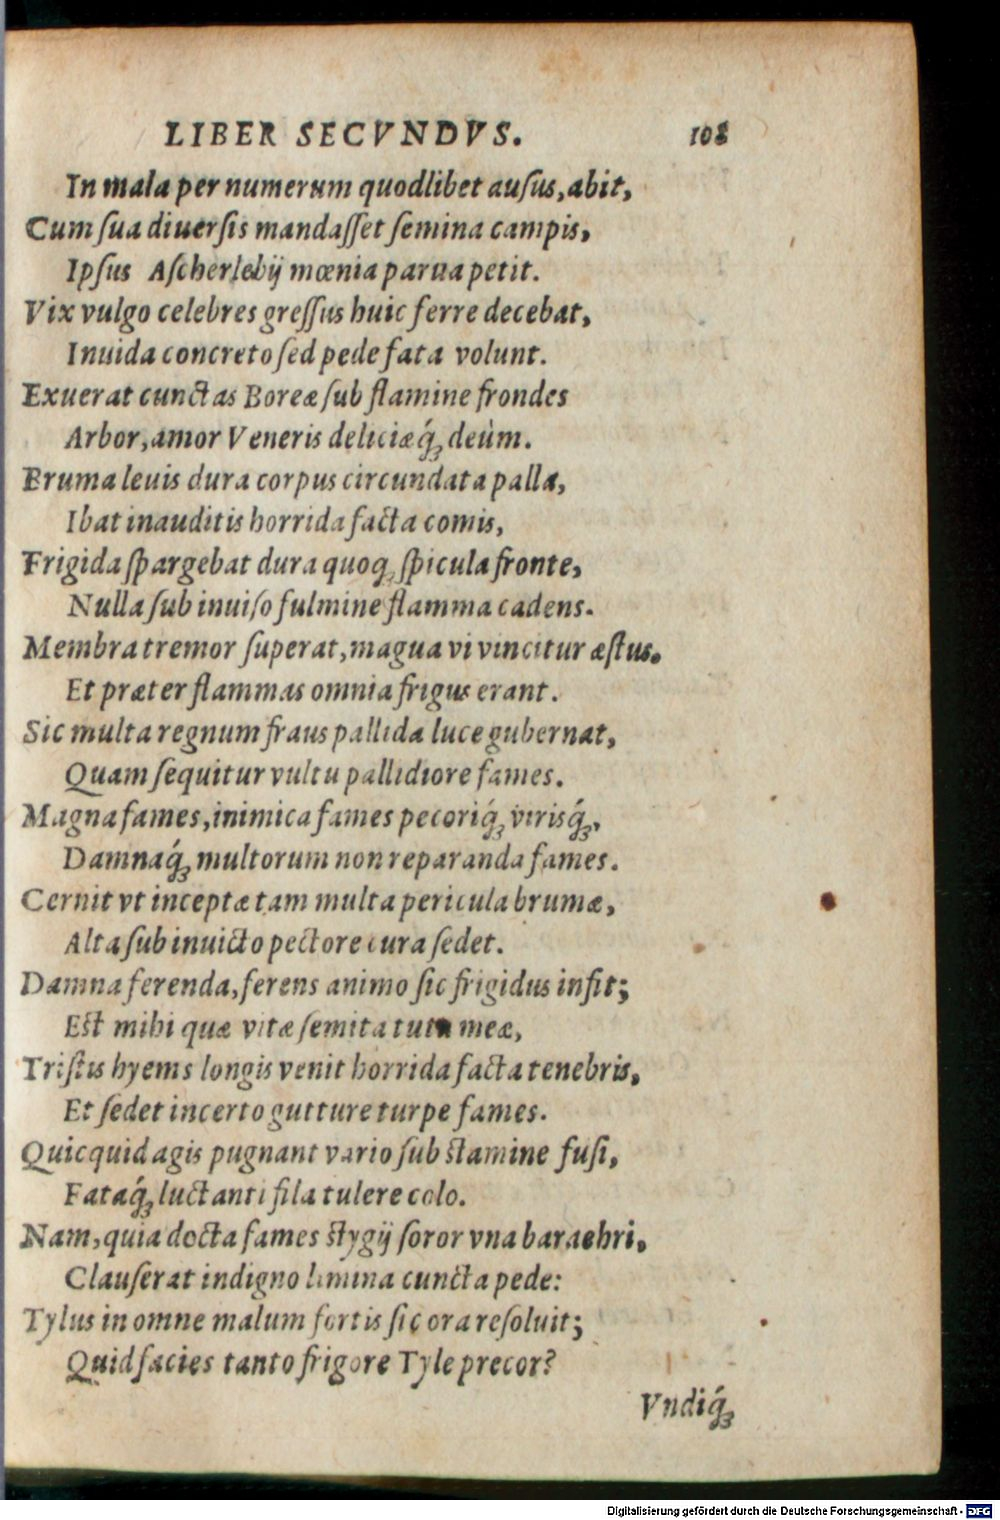 LIBER SECVNDVS. 108
In mala per numerum quodlibet auſus, abit,
Cum ſua diuerſis mandaſſet ſemina campis,
Ipſus Aſcherlebij mœnia parua petit.
Vix vulgo celebres greſſus huic ferre decebat,
Inuida concreto ſed pede fata volunt.
Exuerat cunctas Boreæ ſub flamine frondes
Arbor, amor Veneris deliciæq́ꝫ deûm.
Bruma leuis dura corpus circundata palla,
Ibat inauditis horrida facta comis,
Frigida ſpargebat dura quoqꝫ ſpicula fronte,
Nulla ſub inuiſo fulmine flamma cadens.
Membra tremor ſuperat, magua vi vincitur æſtus.
Et præter flammas omnia frigus erant.
Sic multa regnum fraus pallida luce gubernat,
Quam ſequitur vultu pallidiore fames.
Magna fames, inimica fames pecoriq́ꝫ virisq́ꝫ,
Damnaq́ꝫ multorum non reparanda fames.
Cernit vt inceptæ tam multa pericula brumæ,
Alta ſub inuicto pectore cura ſedet.
Damna ferenda, ferens animo ſic frigidus inſit;
Eſt mihi quæ vitæ ſemita tuta meæ,
Triſtis hyems longis venit horrida facta tenebris,
Et ſedet incerto gutture turpe fames.
Quicquid agis pugnant vario ſub ſtamine fuſi,
Fataq́ꝫ luctanti fila tulere colo.
Nam, quia docta fames ſtygij ſoror vna baraehri,
Clauſerat indigno limina cuncta pede:
Tylus in omne malum fortis ſic ora reſoluit;
Quid facies tanto frigore Tyle precor?
Vndiq́ꝫ
Digitalisierung gefördert durch die Deutsche Forschungsgemeinschaft - DFG